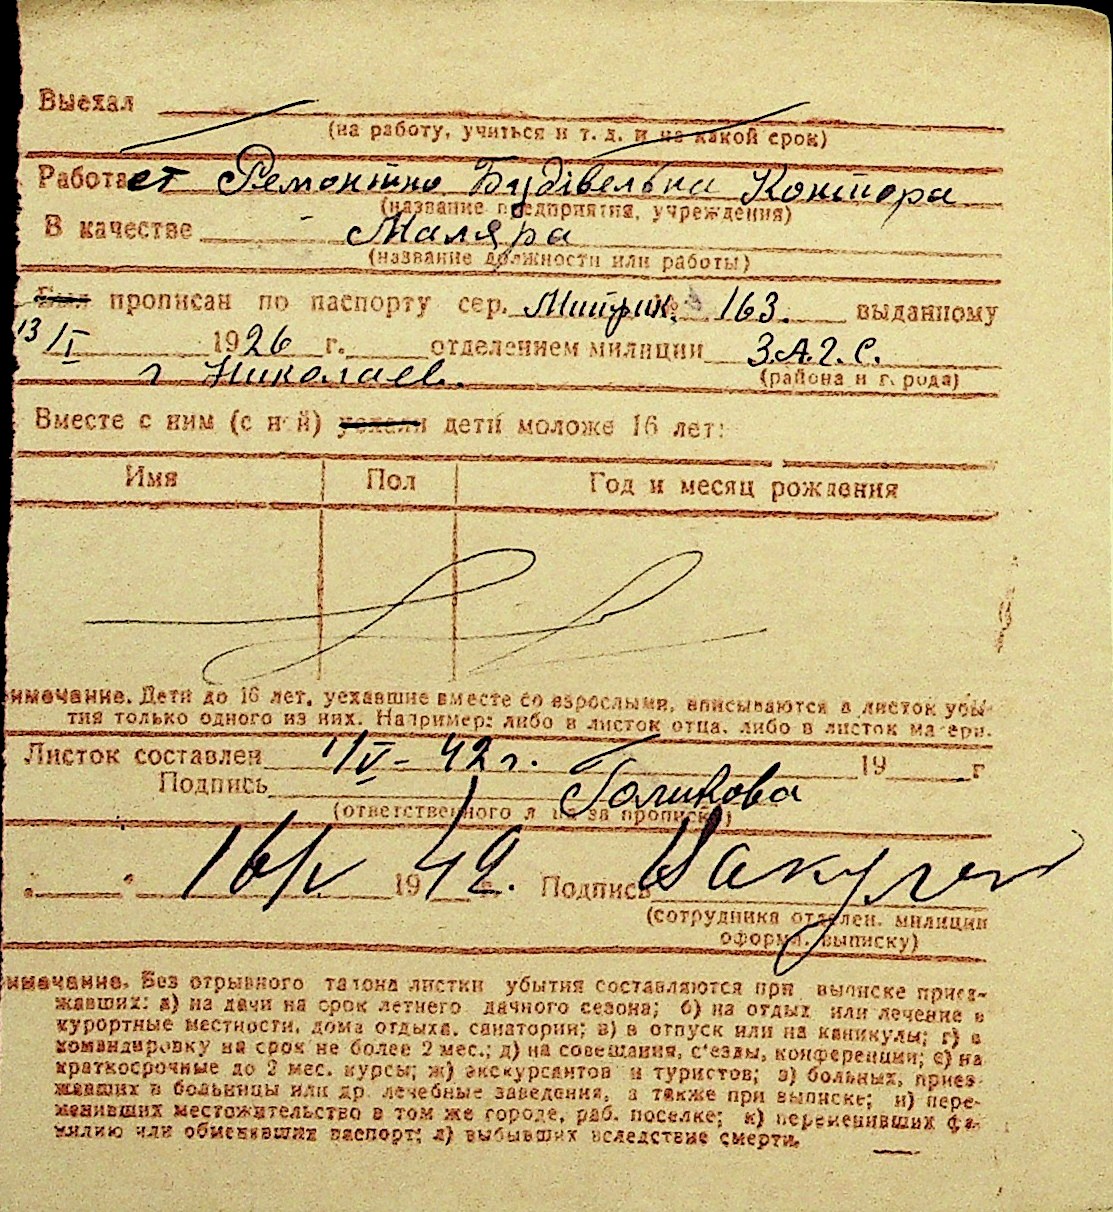 Выехал
(на работу, учиться и т. д. и на какой срок)
Работает Ремонтно Будівельна Контора
(название предприятия, учреждения)
В качестве Маляра
(название должности или работы)
Был прописан по паспорту сер. Метрик. № 163. выданному
13/I 1926 г. отделением милиции З.А.Г.С.
г Николаев. (района и города)
Вместе с ним (с ней) уехали дети моложе 16 лет:
Имя Пол Год и месяц рождения
имечание. Дети до 16 лет, уехавшие вместе со взрослыми, вписываются в листок убы-
тия только одного из них. Например: либо в листок отца, либо в листок матери.
Листок составлен 1/V- 42 г. 19 г
Подпись Голикова
(ответственного л за прописку)
„ “ 16/V 1942. Подпись
(сотрудника отделен. милиции
оформл. выписку)
имечание. Без отрывного талона листки убытия составляются при выписке приез-
жавших: а) на дачи на срок летнего дачного сезона; б) на отдых или лечение в
курортные местности, дома отдыха, санатории; в) в отпуск или на каникулы; г) в
командировку на срок не более 2 мес.; д) на совещания, с'езды, конференции; е) на
краткосрочные до 2 мес. курсы; ж) экскурсантов и туристов; з) больных, приез-
жавших в больницы или др. лечебные заведения, а также при выписке; и) пере-
менивших местожительство в том же городе, раб. поселке; к) переменивших фа-
милию или обменявших паспорт; л) выбывших вследствие смерти.